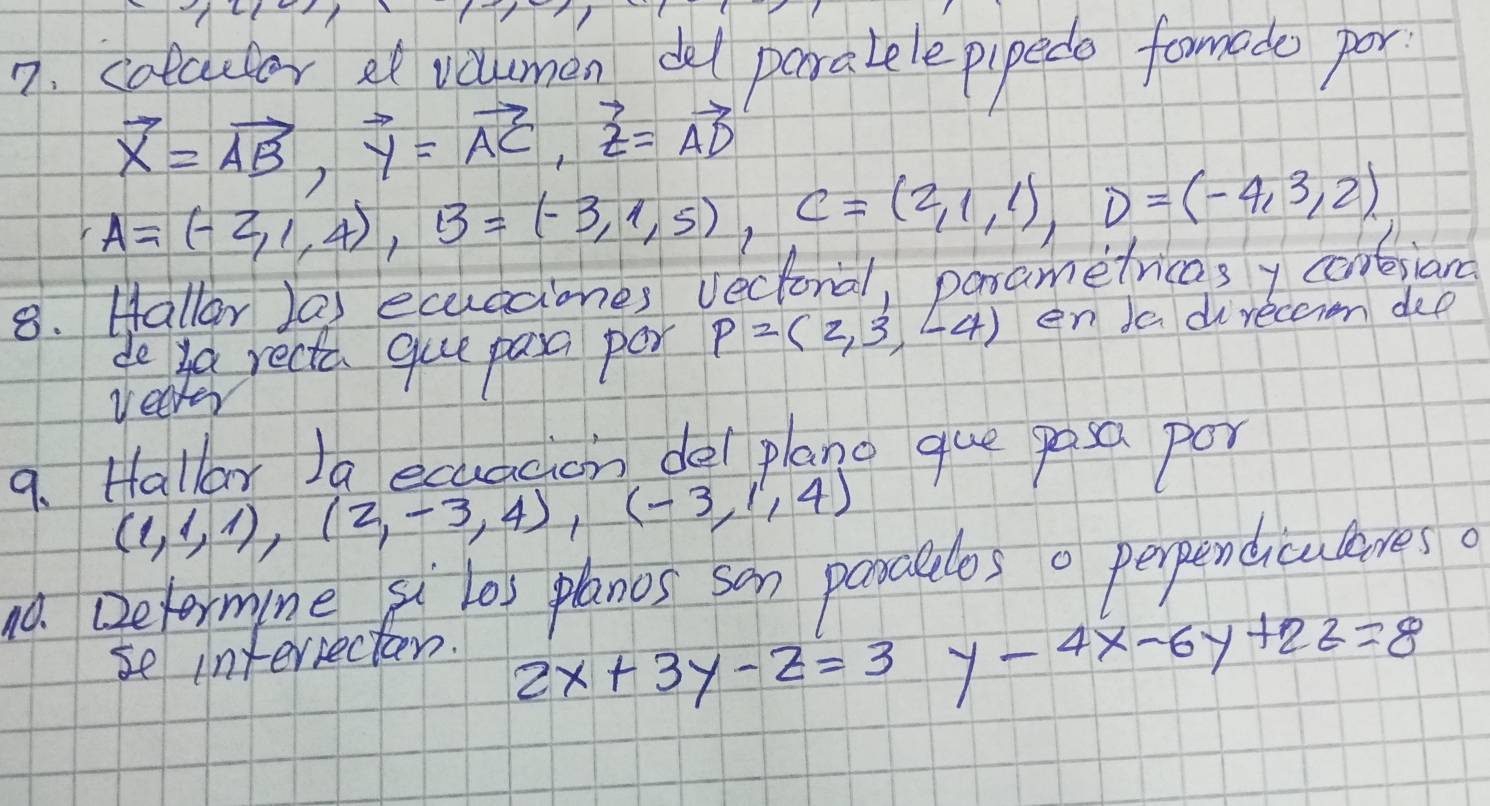 7. Calcular el volumen del paralelepipedo formado por:
x⃗ = AB⃗, y⃗ = AC⃗, z⃗ = AD⃗
A = (-2,1,4), B = (-3,1,5), C = (2,1,1), D = (-4,3,2),
8. Hallar las ecuaciones vectorial, paramétricas y cartesiana
de la recta que pasa por P = (2,3,-4) en la dirección del
vector
9. Hallar la ecuación del plano que pasa por
(1,1,1), (2,-3,4), (-3,1,4)
10. Determine si los planos son paralelos o perpendiculares o
se intersectan. 2x + 3y - z = 3 y - 4x - 6y + 2z = 8